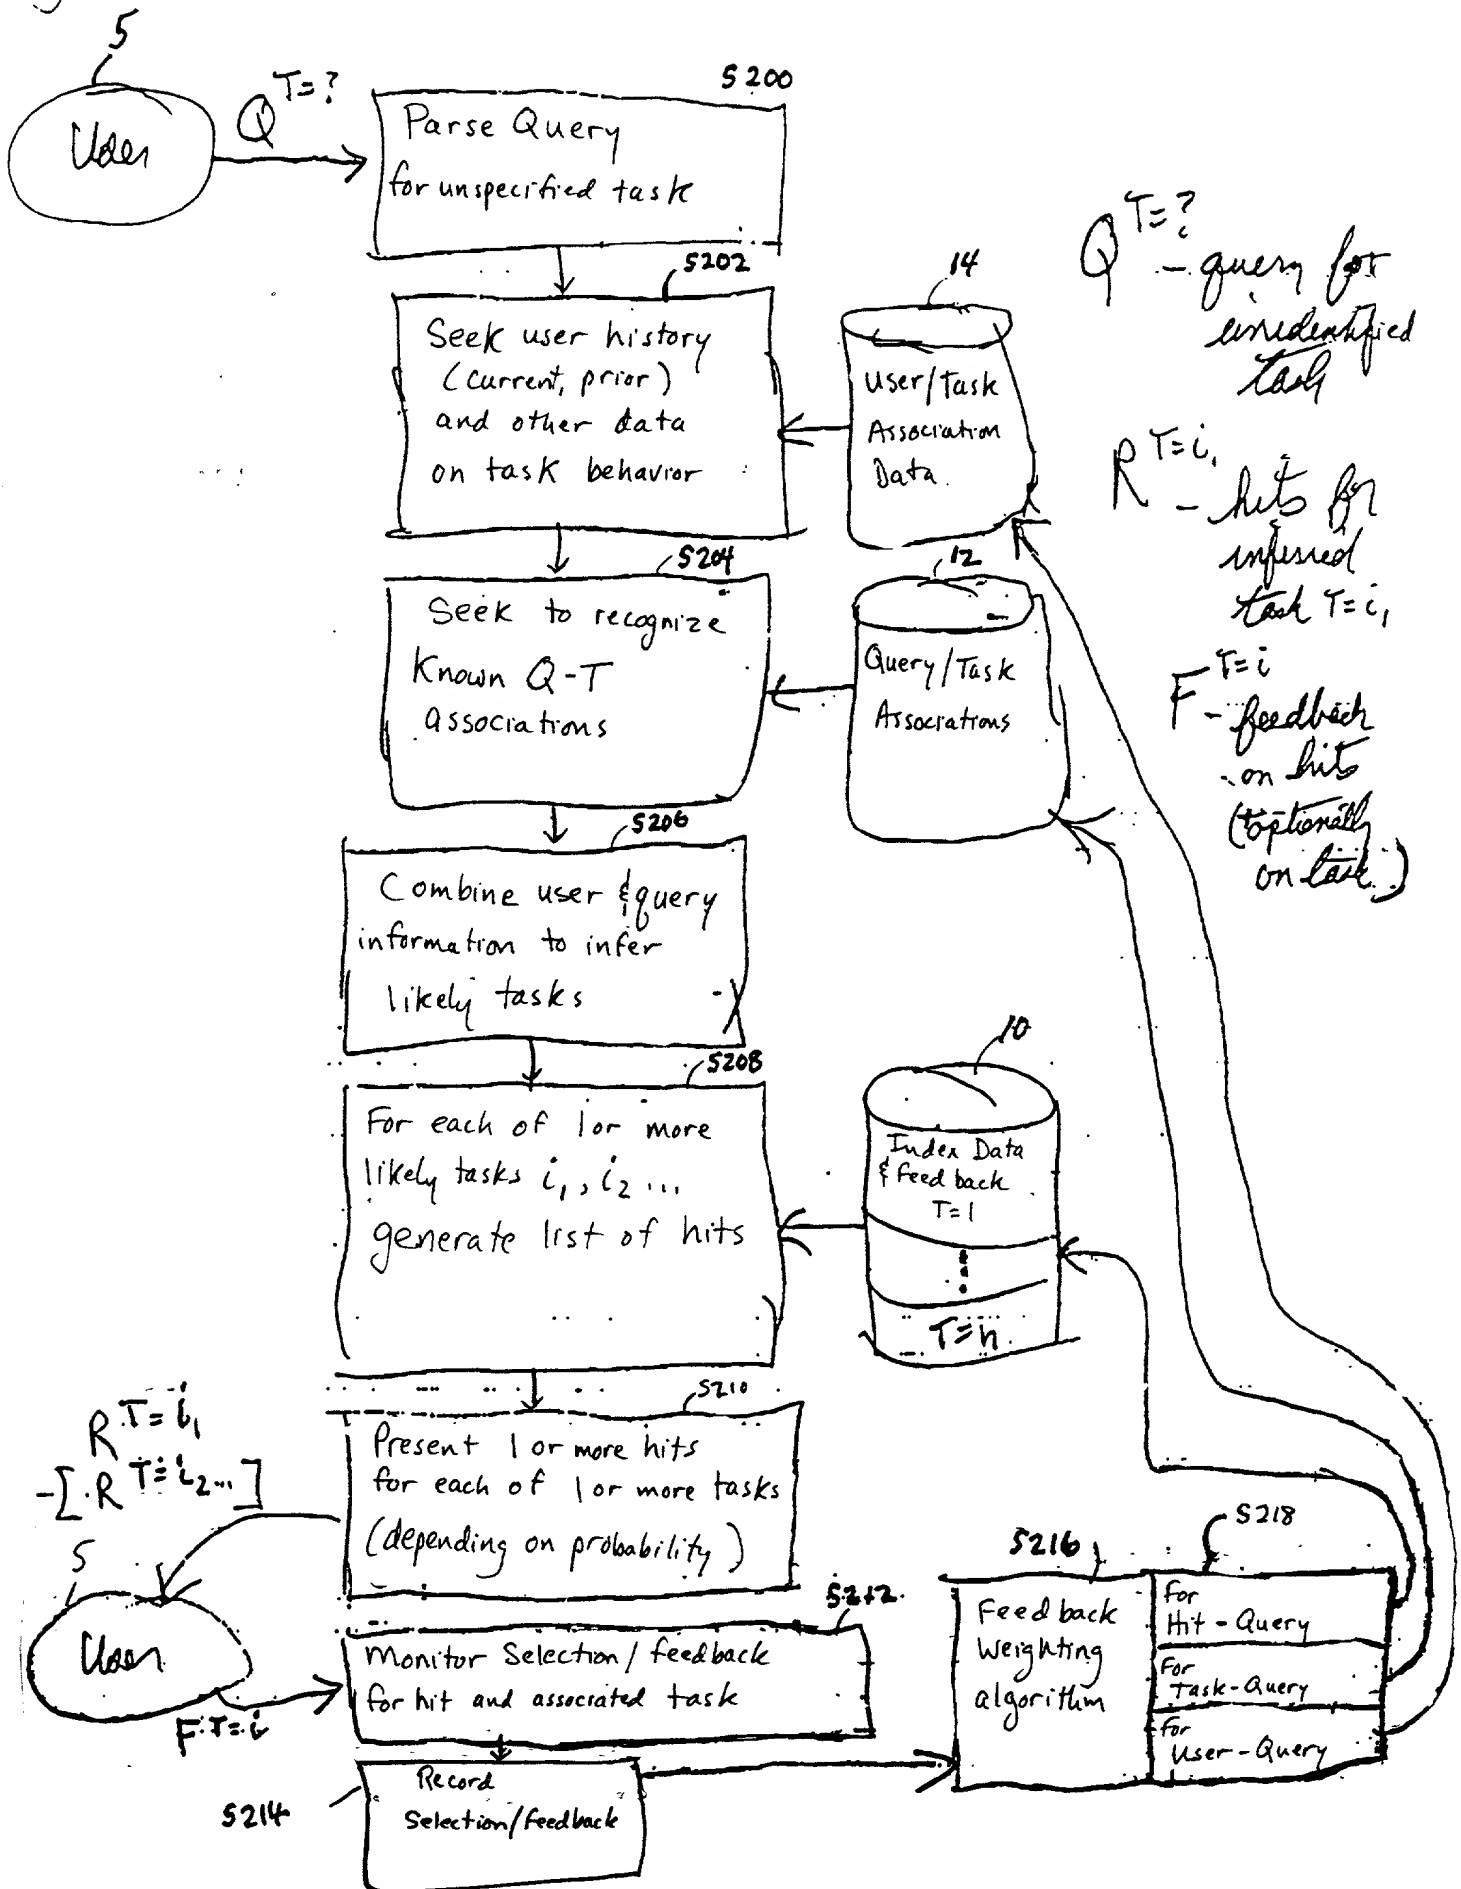 5
User
Q T=?
S200
Parse Query
for unspecified task
S202
Seek user history
(current, prior)
and other data
on task behavior
14
User/Task
Association
Data
S204
Seek to recognize
Known Q-T
associations
12
Query/Task
Associations
S206
Combine user & query
information to infer
likely tasks
S208
For each of 1 or more
likely tasks i1, i2 ...
generate list of hits
10
Index Data
& feedback
T=1
T=n
S210
Present 1 or more hits
for each of 1 or more tasks
(depending on probability)
R T=i1
-[R T=i2...]
5
User
F T=i
S212
Monitor Selection/feedback
for hit and associated task
S214
Record
Selection/feedback
S216
Feedback
weighting
algorithm
S218
For
Hit-Query
For
Task-Query
For
User-Query
Q T=?
- query for
unidentified
task
R T=i1
- hits for
inferred
task T=i1
F T=i
- feedback
on hits
(optionally
on task)